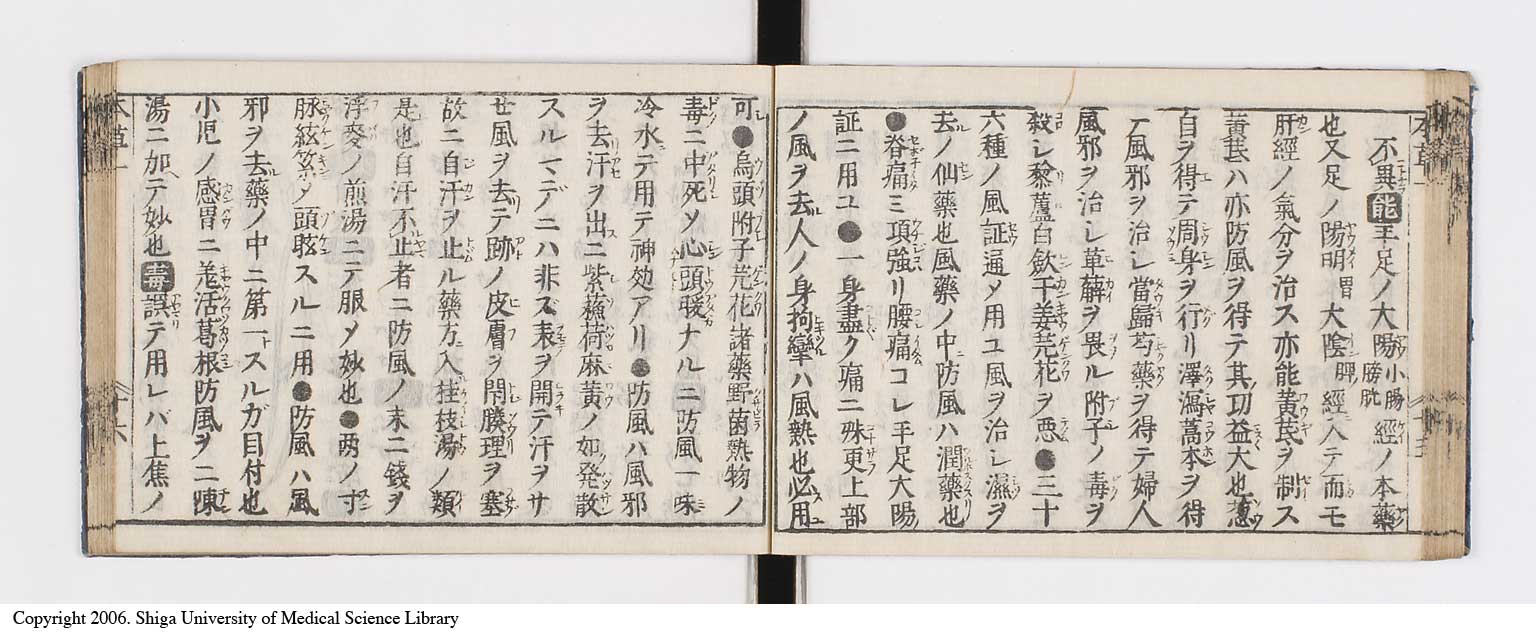 不異能手足ノ大陽小腸膀胱經ノ本藥
也又足ノ陽明胃大陰脾經入テ而モ
肝經ノ氣分ヲ治ス亦能黄芪ヲ制ス
黄芪ハ亦防風ヲ得テ其功益大也葱
白ヲ得テ周身ヲ行リ澤瀉藁本ヲ得
テ風邪ヲ治シ當歸芍藥ヲ得テ婦人
風邪ヲ治シ萆薢ヲ畏ル附子ノ毒ヲ
殺シ藜蘆白歛干姜芫花ヲ惡●三十
六種ノ風証通メ用ユ風ヲ治シ濕ヲ
去ノ仙藥也風藥ノ中防風ハ潤藥也
●脊痛ミ項強リ腰痛コレ手足大陽
証ニ用ユ●一身盡ク痛ニ殊更上部
ノ風ヲ去人ノ身拘攣ハ風熱也必用
可●烏頭附子芫花諸藥野菌熱物ノ
毒ニ中死メ心頭暖ナルニ防風一味
冷水テ用テ神効アリ●防風ハ風邪
ヲ去汗ヲ出ニ紫蘓荷麻黄ノ如発散
スルマデニハ非ズ表ヲ開テ汗ヲサ
セ風ヲ去テ跡ノ皮膚ヲ閇腠理ヲ塞
故ニ自汗ヲ止ル藥方入桂枝湯ノ類
是也自汗不止者ニ防風ノ末二錢ヲ
浮麥ノ煎湯ニテ服メ妙也●両ノ寸
脉絃緊メ頭眩スルニ用●防風ハ風
邪ヲ去藥ノ中ニ第一トスルガ目付也
小児ノ感冒ニ羌活葛根防風ヲ二陳
湯ニ加ヘテ妙也毒誤テ用レバ上焦ノ
本草一
十六
Copyright 2006. Shiga University of Medical Science Library